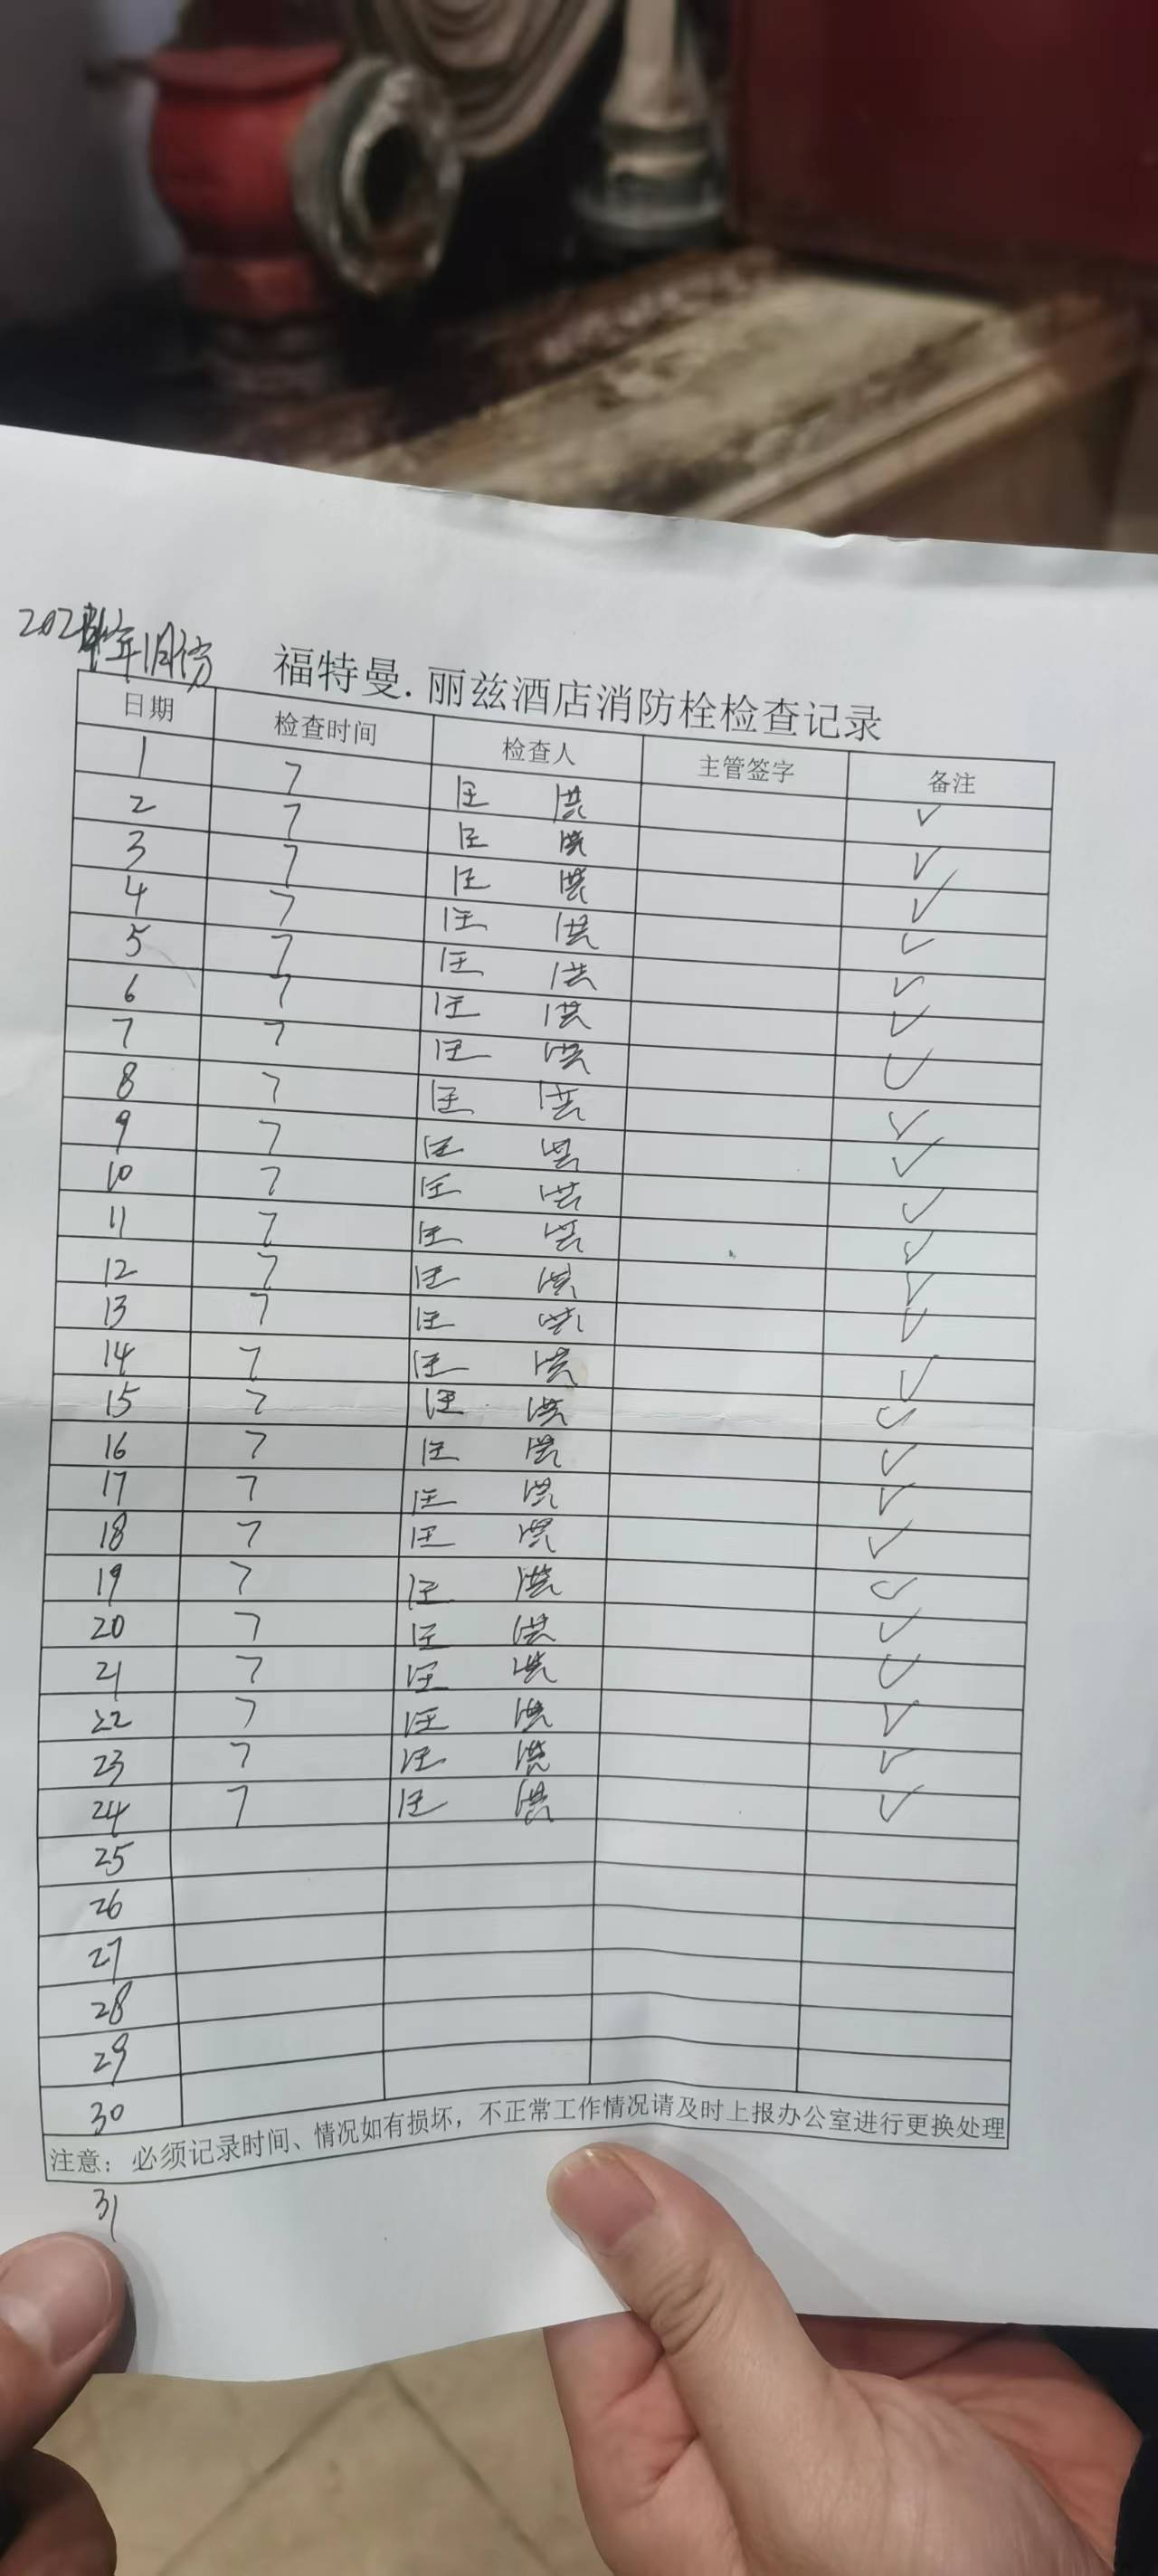 年1月份
福特曼.丽兹酒店消防栓检查记录
日期 检查时间 检查人 主管签字 备注
1 7 汪 洪 ✓
2 7 汪 洪 ✓
3 7 汪 洪 ✓
4 7 汪 洪 ✓
5 7 汪 洪 ✓
6 7 汪 洪 ✓
7 7 汪 洪 ✓
8 7 汪 洪 ✓
9 7 汪 洪 ✓
10 7 汪 洪 ✓
11 7 汪 洪 ✓
12 7 汪 洪 ✓
13 7 汪 洪 ✓
14 7 汪 洪 ✓
15 7 汪 洪 ✓
16 7 汪 洪 ✓
17 7 汪 洪 ✓
18 7 汪 洪 ✓
19 7 汪 洪 ✓
20 7 汪 洪 ✓
21 7 汪 洪 ✓
22 7 汪 洪 ✓
23 7 汪 洪 ✓
24 7 汪 洪 ✓
25
26
27
28
29
30
注意：必须记录时间、情况如有损坏，不正常工作情况请及时上报办公室进行更换处理
31